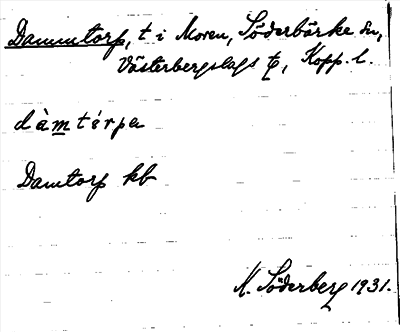 Dammtorp, t i Moren, Söderbärke sn,
Västerbergslags tg, Kopp. l.
dàmtórpa
Damtorp kb
M. Söderberg 1931.